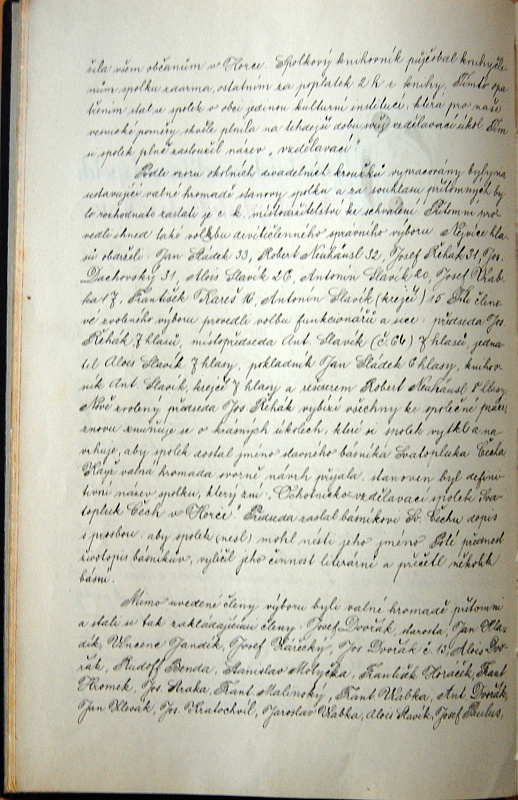 žila všem občanům v Horce. Spolkový knihovník půjčoval knihy čle-
nům spolku zdarma, ostatním za poplatek 2 h z knihy. Tímto opa-
třením stal se spolek v obci jedinou kulturní institucí, která pro naše
vesnické poměry skvěle plnila na tehdejší dobu svůj vzdělavací úkol. Tím
si spolek plně zasloužil název „vzdělavací“
Podle vzoru okolních divadelních kroužků vypracovány byly na
ustavující valné hromadě stanovy spolku a za souhlasu přítomných by-
lo rozhodnuto zaslati je c. k. místodržitelství ke schválení. Přitom pro-
vedli ihned také volbu devítičlenného správního výboru. Nejvíce hla-
sů obdrželi: Jan Sládek 33, Robert Neuhäusl 32, Josef Řehák 31, Jos.
Dachovský 31, Alois Slavík 26, Antonín Slavík 20, Josef Vrab-
ka 17, František Kareš 16, Antonín Slavík (krejčí) 15. Tito členo-
vé zvoleného výboru provedli volbu funkcionářů a sice: předseda Jos.
Řehák 7 hlasů, místopředseda Ant. Slavík (č. 64) 7 hlasů, jedna-
tel Alois Slavík 7 hlasy, pokladník Jan Sládek 6 hlasy, knihov-
ník Ant. Slavík, krejčí 7 hlasy a režisérem Robert Neuhäusl 8 hlasy.
Nově zvolený předseda Jos. Řehák vybízí všechny ke společné práci,
znovu zmiňuje se o krásných úkolech, které si spolek vytkl a na-
vrhuje, aby spolek dostal jméno slavného básníka Svatopluka Čecha.
Když valná hromada svorně návrh přijala, stanoven byl defini-
tivní název spolku, který zní: „Ochotnicko-vzdělavací spolek Sva-
topluk Čech v Horce“. Předseda zaslal básníkovi Sv. Čechu dopis
s prosbou, aby spolek (nesl) mohl nésti jeho jméno. Poté přednesl
životopis básníkův, vylíčil jeho činnost literární a přečetl několik
básní.
Mimo uvedené členy výboru byli valné hromadě přítomni
a stali se tak zakládajícími členy: Josef Dvořák, starosta, Jan Hla-
dík, Vincenc Jandík, Josef Zárecký, Jos. Dvořák č. 13, Alois Dvo-
řák, Rudolf Benda, Stanislav Motyčka, František Horáček, Frant.
Hromek, Jos. Straka, Frant. Malinský, Frant. Vabka, Ant. Dvořák,
Jan Klesák, Jos. Kratochvíl, Jaroslav Vabka, Alois Slavík, Josef Paulus,